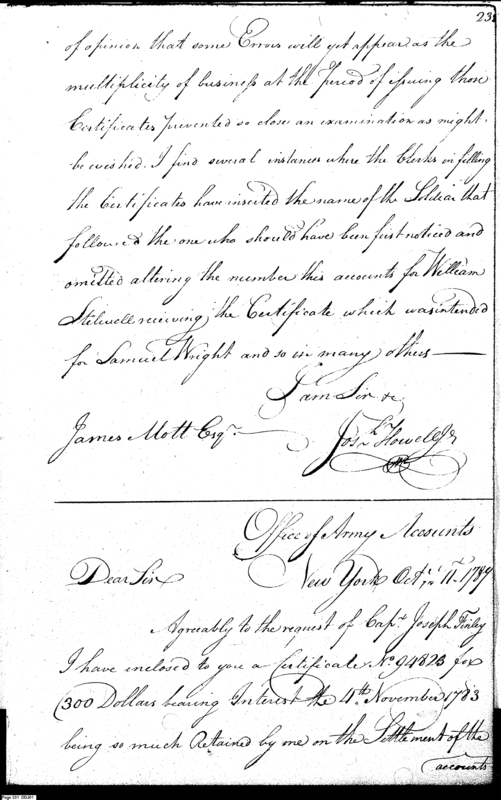 23
of opinion that some Errors will yet appear as the
multiplicity of business at the Period of issuing those
Certificates prevented so close an examination as might
be wished. I find several instances where the Clerks in filling
the Certificates have inserted the name of the Soldier that
followed the one who should have been first noticed and
omitted altering the number this accounts for William
Stilwell receiving the Certificate which was intended
for Samuel Wright and so in many others —
I am Sir &c
James Mott Esqr. Josh Howell Jr
Office of Army Accounts
Dear Sir New York Octr. 11th 1789
Agreably to the request of Capt. Joseph Finley
I have inclosed to you a Certificate No 94823 for
300 Dollars bearing Interest the 4th November 1783
being so much Retained by me on the Settlement of the
accounts
Page 231 DDJ01